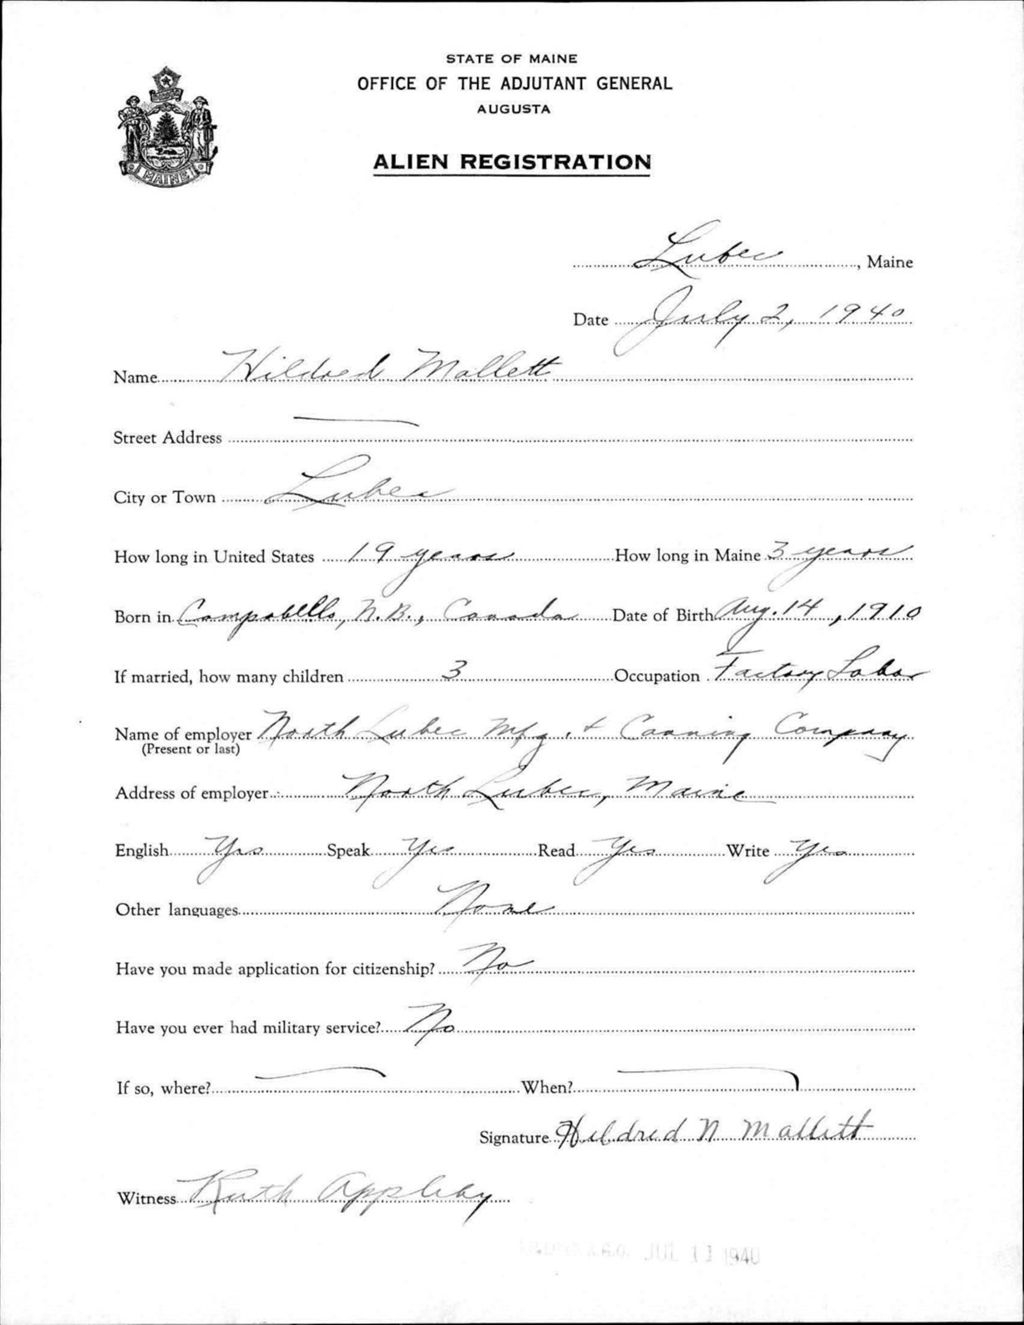 STATE OF MAINE
OFFICE OF THE ADJUTANT GENERAL
AUGUSTA
ALIEN REGISTRATION
MAINE
Lubec, Maine
Date July 2, 1940
Name Hildred Mallett
Street Address
City or Town Lubec
How long in United States 19 years How long in Maine 3 years
Born in Campobello, N.B., Canada Date of Birth Aug. 14, 1910
If married, how many children 3 Occupation Factory Labor
Name of employer North Lubec Mfg. & Canning Company
(Present or last)
Address of employer North Lubec, Maine
English Yes Speak Yes Read Yes Write Yes
Other languages None
Have you made application for citizenship? No
Have you ever had military service? No
If so, where? When?
Signature Hildred N Mallett
Witness Ruth Appleby
JUL 11 1940